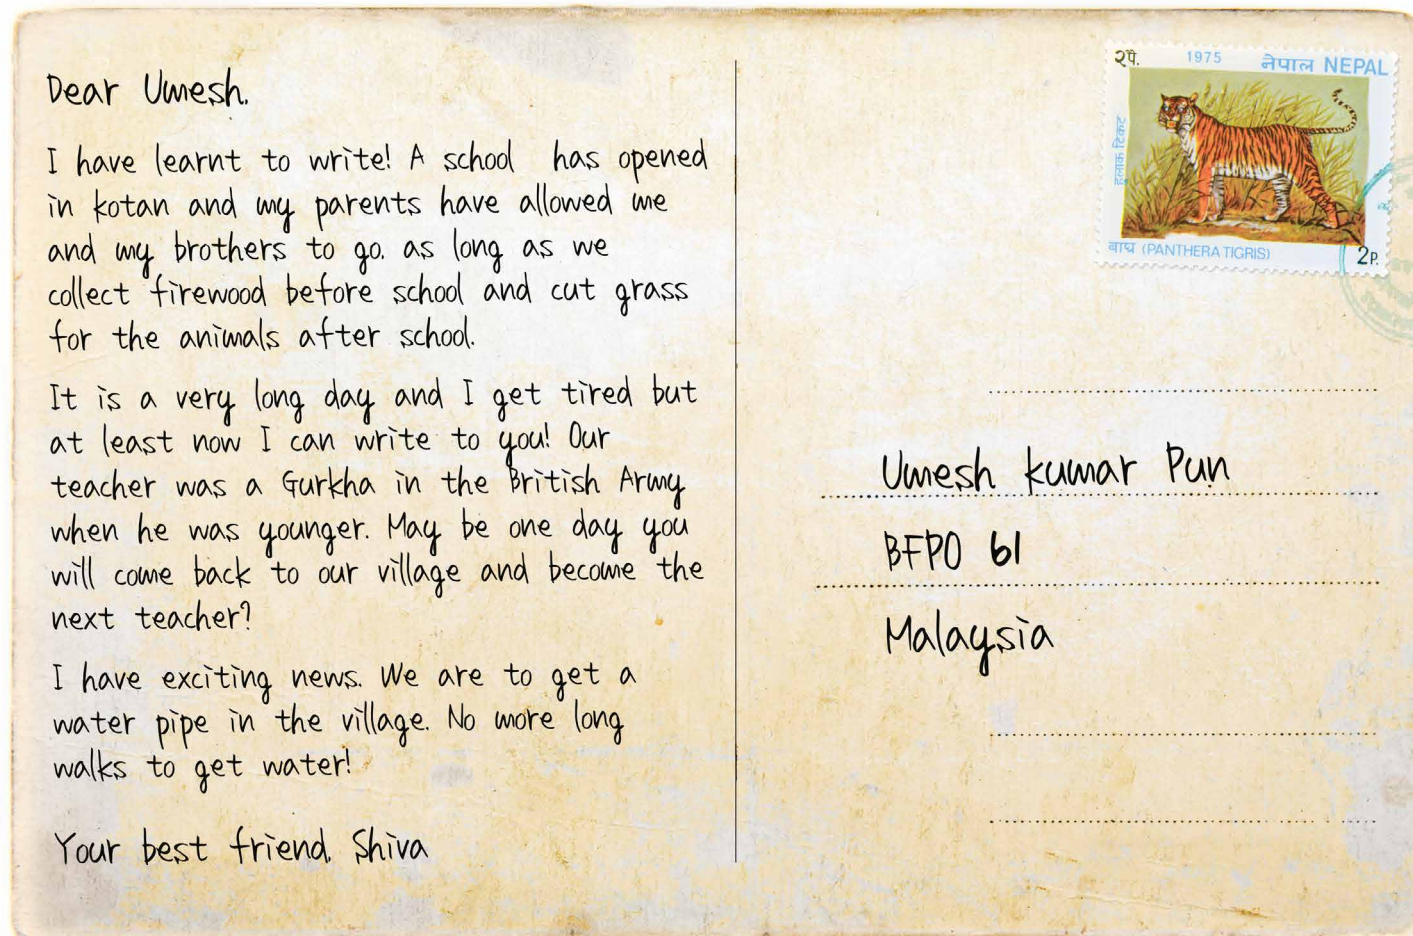 Dear Umesh.
I have learnt to write! A school has opened
in kotan and my parents have allowed me
and my brothers to go. as long as we
collect firewood before school and cut grass
for the animals after school.
It is a very long day and I get tired but
at least now I can write to you! Our
teacher was a Gurkha in the British Army
when he was younger. May be one day you
will come back to our village and become the
next teacher?
I have exciting news. We are to get a
water pipe in the village. No more long
walks to get water!
Your best friend. Shiva
२पै. 1975 नेपाल NEPAL
हुलाक टिकट
बाघ (PANTHERA TIGRIS) 2P.
Umesh kumar Pun
BFPO 61
Malaysia